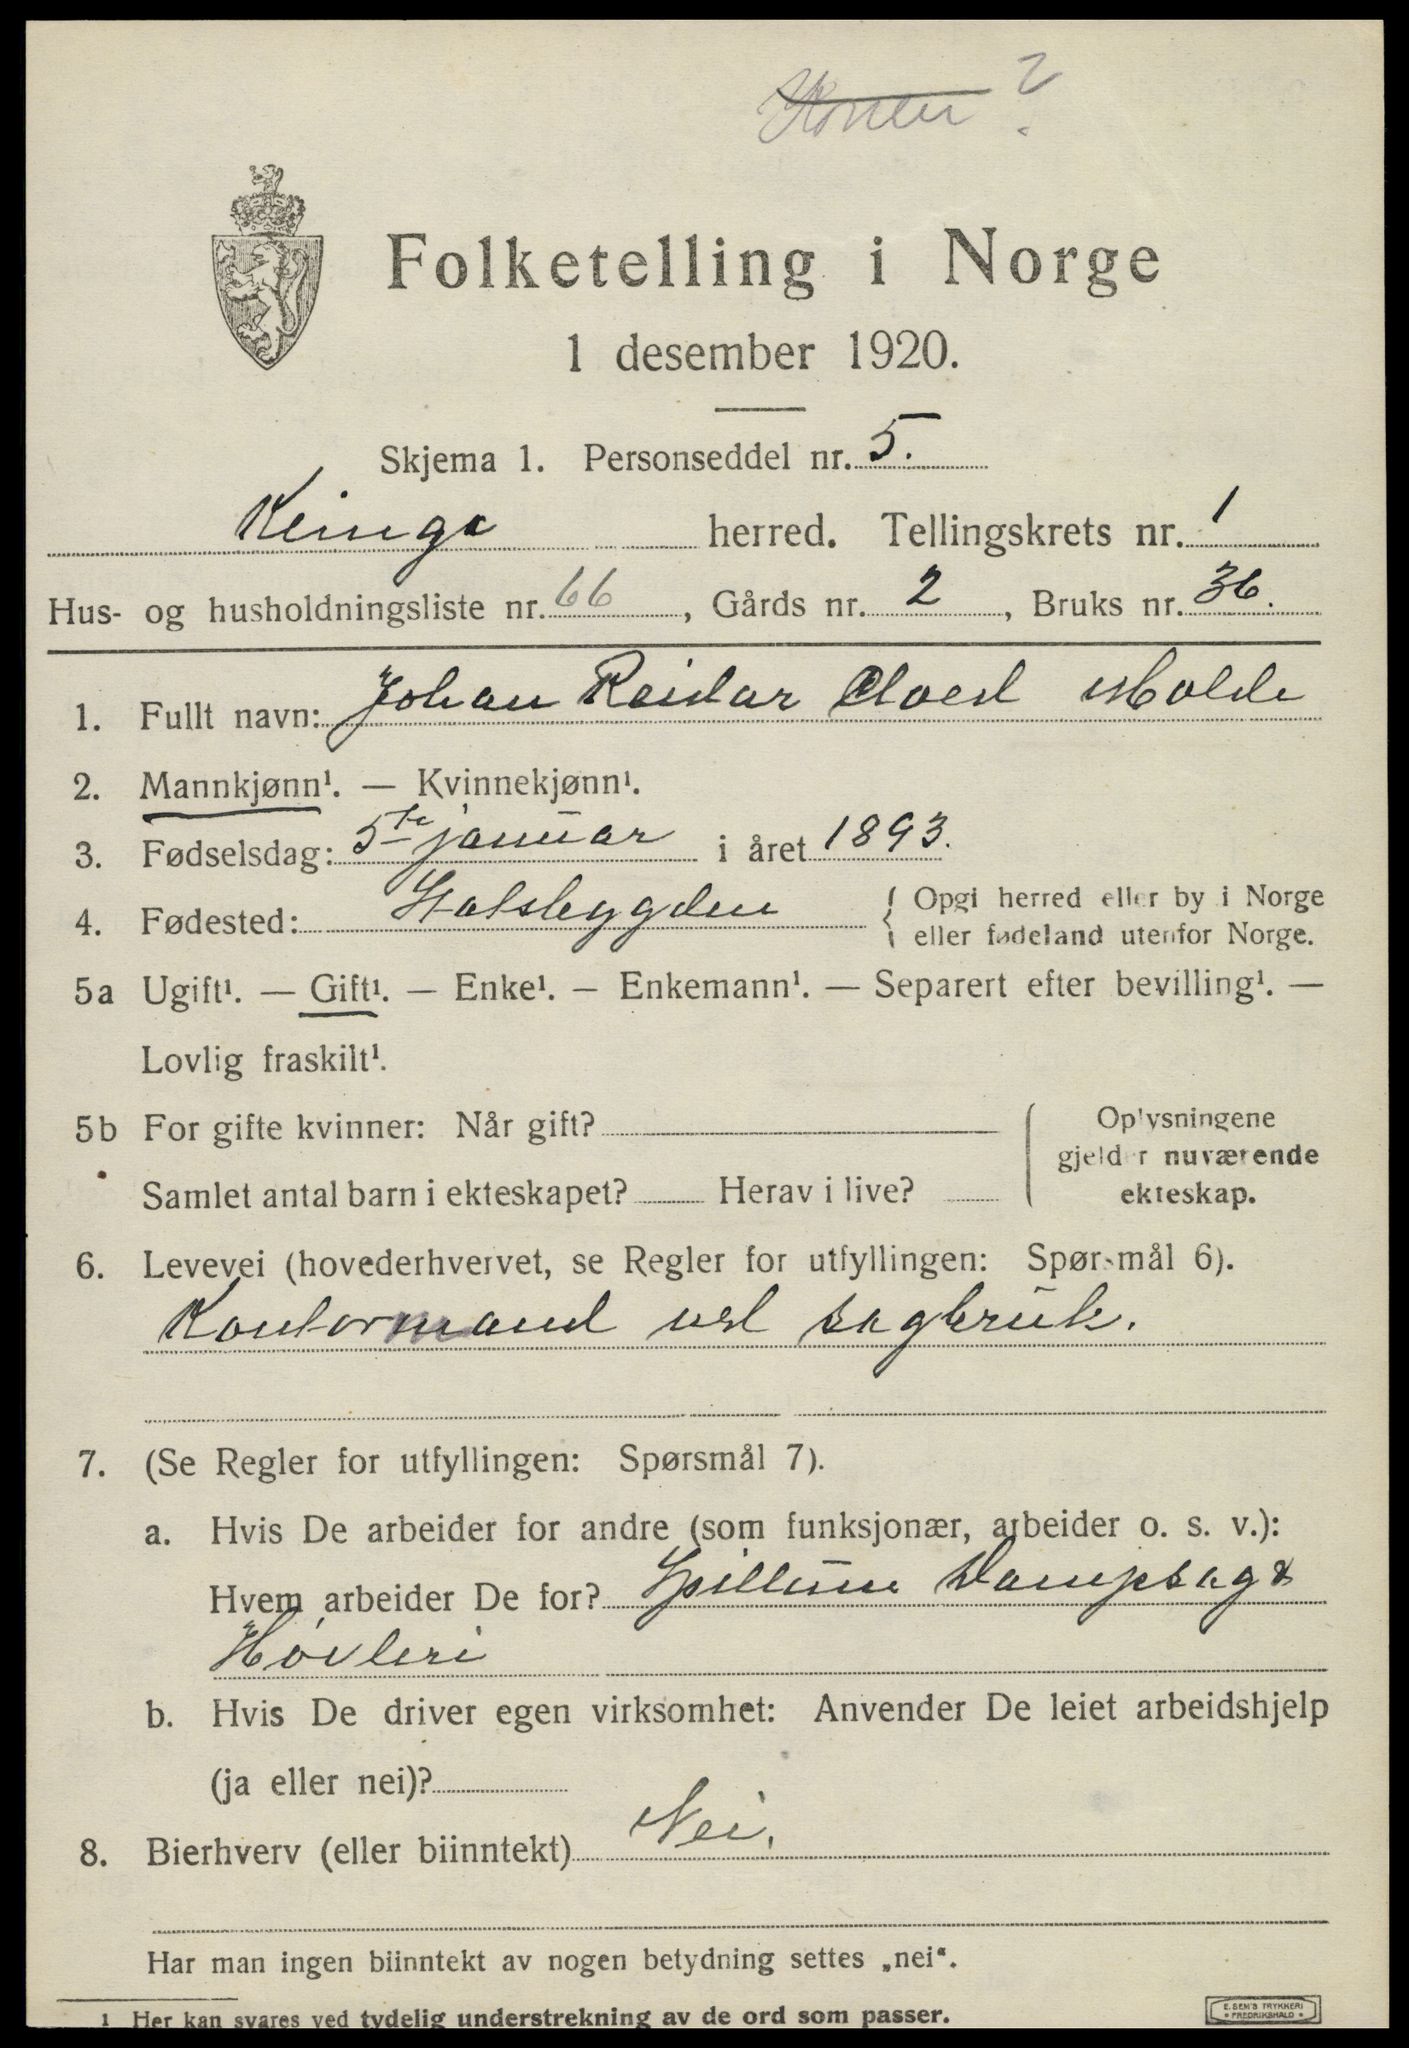 Folketelling i Norge
1 desember 1920.
Skjema 1. Personseddel nr. 5.
Klinga herred. Tellingskrets nr. 1
Hus- og husholdningsliste nr. 66, Gårds nr. 2, Bruks nr. 36.
1. Fullt navn: Johan Reidar Molde
2. Mannkjønn¹. — Kvinnekjønn¹.
3. Fødselsdag: 5te januar i året 1893.
4. Fødested: Statsbygden { Opgi herred eller by i Norge
eller fødeland utenfor Norge.
5a Ugift¹. — Gift¹. — Enke¹. — Enkemann¹. — Separert efter bevilling¹. —
Lovlig fraskilt¹.
5b For gifte kvinner: Når gift?
Samlet antal barn i ekteskapet? Herav i live?
Oplysningene
gjelder nuværende
ekteskap.
6. Levevei (hovederhvervet, se Regler for utfyllingen: Spørsmål 6).
Kontormand ved sagbruk.
7. (Se Regler for utfyllingen: Spørsmål 7).
a. Hvis De arbeider for andre (som funksjonær, arbeider o. s. v.):
Hvem arbeider De for? Spillum Dampsag &
Høvleri
b. Hvis De driver egen virksomhet: Anvender De leiet arbeidshjelp
(ja eller nei)?
8. Bierhverv (eller biinntekt) Nei.
Har man ingen biinntekt av nogen betydning settes „nei“.
1 Her kan svares ved tydelig understrekning av de ord som passer.
E. SEM'S TRYKKERI
• FREDRIKSHALD •